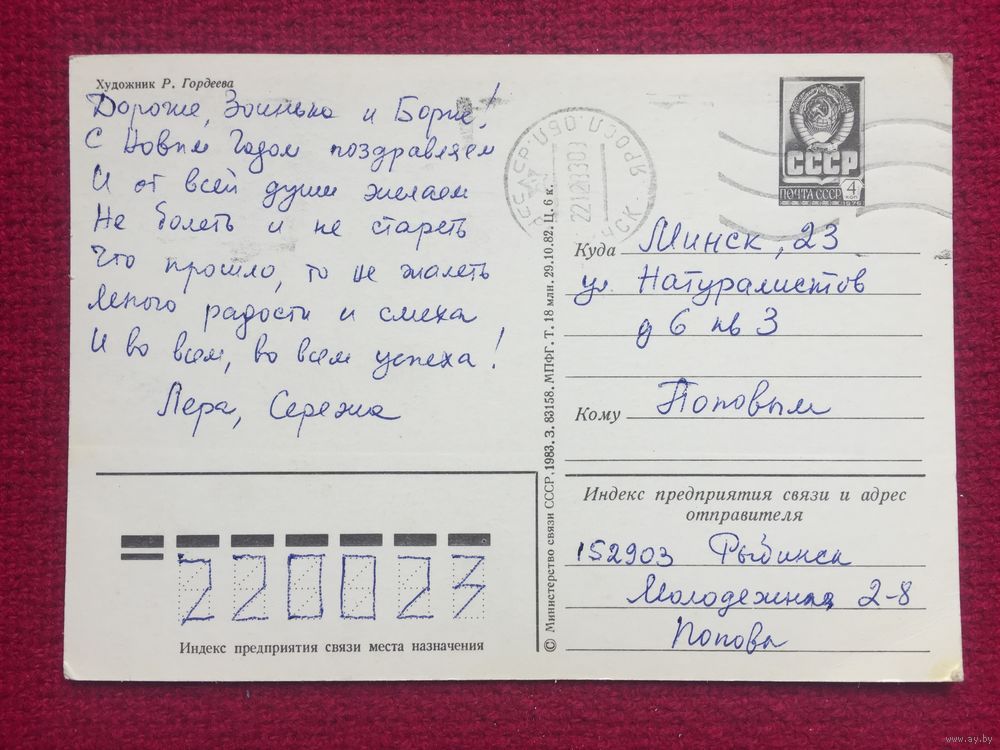 Художник Р. Гордеева
Дорогие, Зоинька и Борис!
С Новым Годом поздравляем
И от всей души желаем
Не болеть и не стареть
Что прошло, то не жалеть
Много радости и смеха
И во всем, во всем успеха!
Лера, Сережа
СССР
ПОЧТА СССР
4
КОП
1976
Куда Минск, 23
ул. Натуралистов
д 6 кв 3
Кому Поповым
Индекс предприятия связи и адрес
отправителя
152903 Рыбинск
Молодежная 2-8
Попова
220023
Индекс предприятия связи места назначения
© Министерство связи СССР, 1983. З. 83158. МПФГ. Т. 18 млн. 29.10.82. Ц. 6 к.
www.ay.by